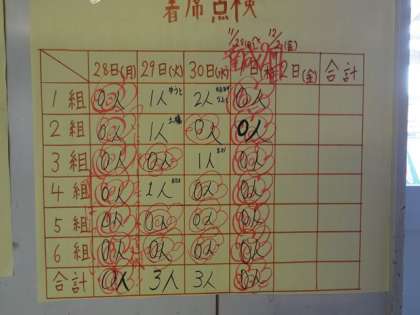 着席点検
11/28(月)~12/2(金)
28日(月) 29日(火) 30日(水) 1日(木) 2日(金) 合計
1組 0人 1人 2人 0人
2組 0人 1人 0人 0人
3組 0人 0人 1人 0人
4組 0人 1人 0人 0人
5組 0人 0人 0人 0人
6組 0人 0人 0人 0人
合計 0人 3人 3人 0人